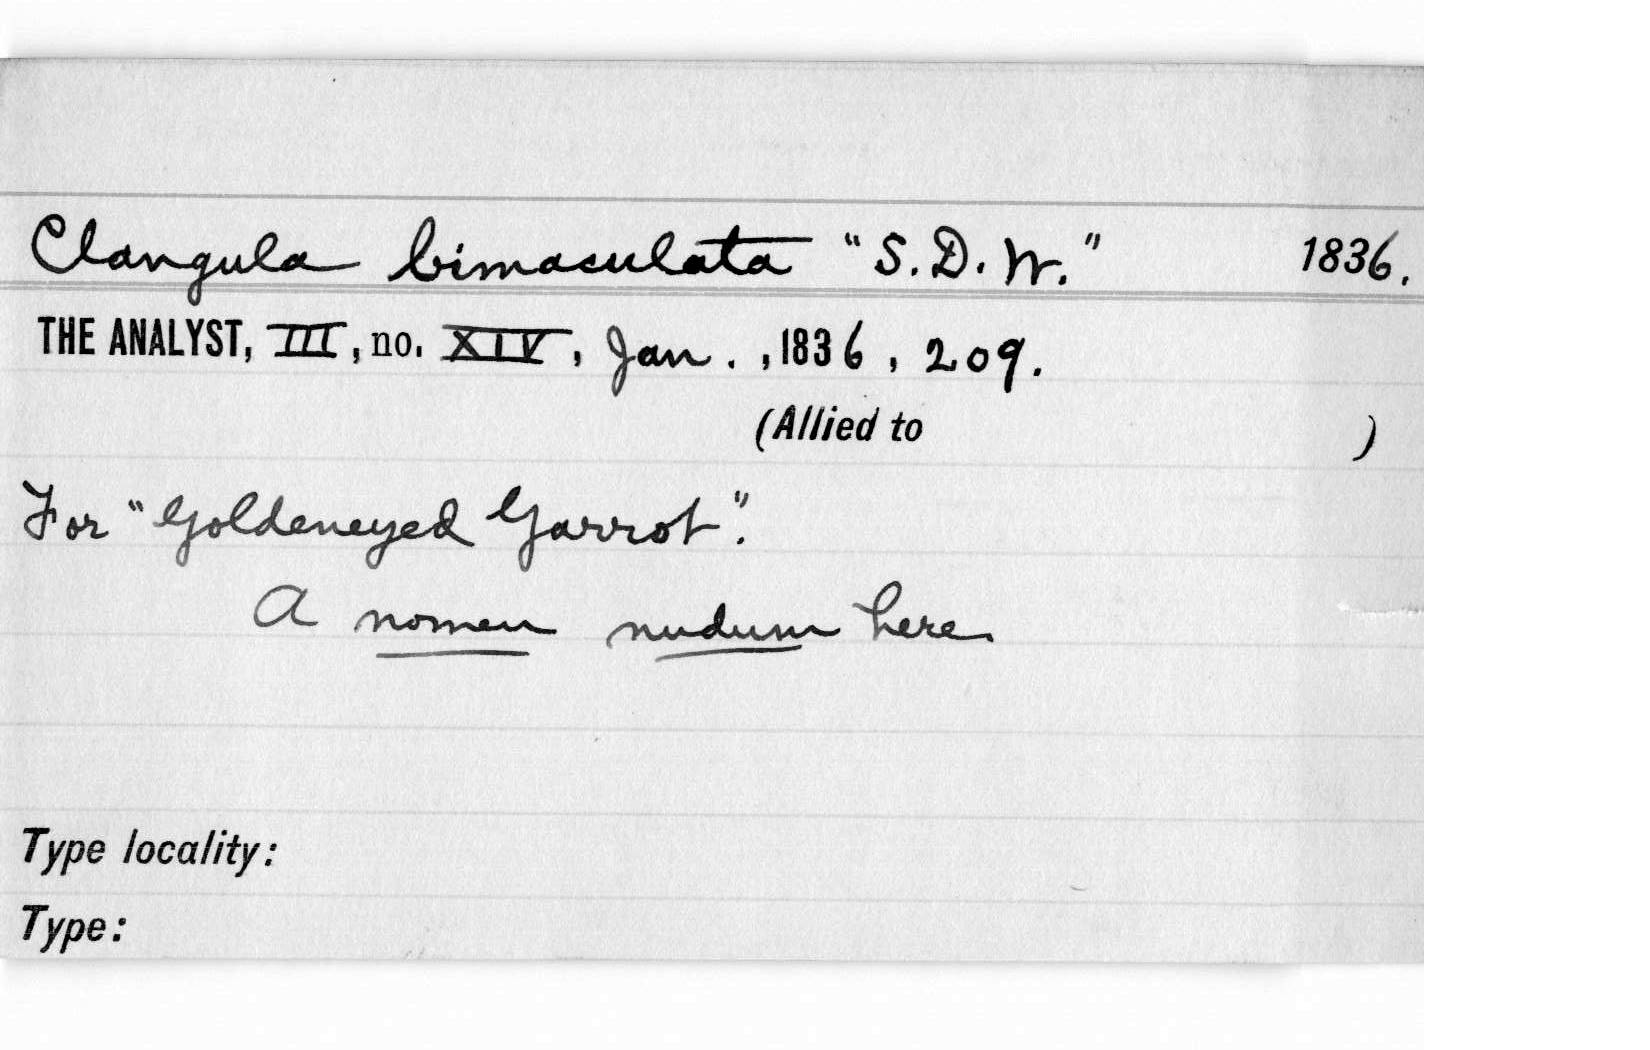 Clangula bimaculata "S.D.W." 1836.
THE ANALYST, III, no. XIV, Jan., 1836, 209.
(Allied to )
For "Goldeneyed Garrot".
A nomen nudum here.
Type locality:
Type: